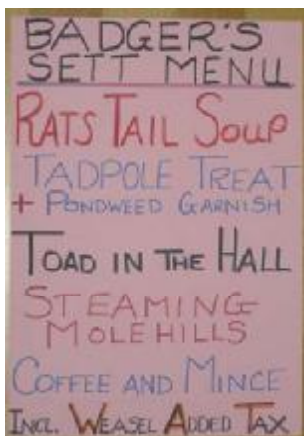 BADGER'S
SETT MENU
RATS TAIL SOUP
TADPOLE TREAT
+ PONDWEED GARNISH
TOAD IN THE HALL
STEAMING
MOLEHILLS
COFFEE AND MINCE
INCL. WEASEL ADDED TAX